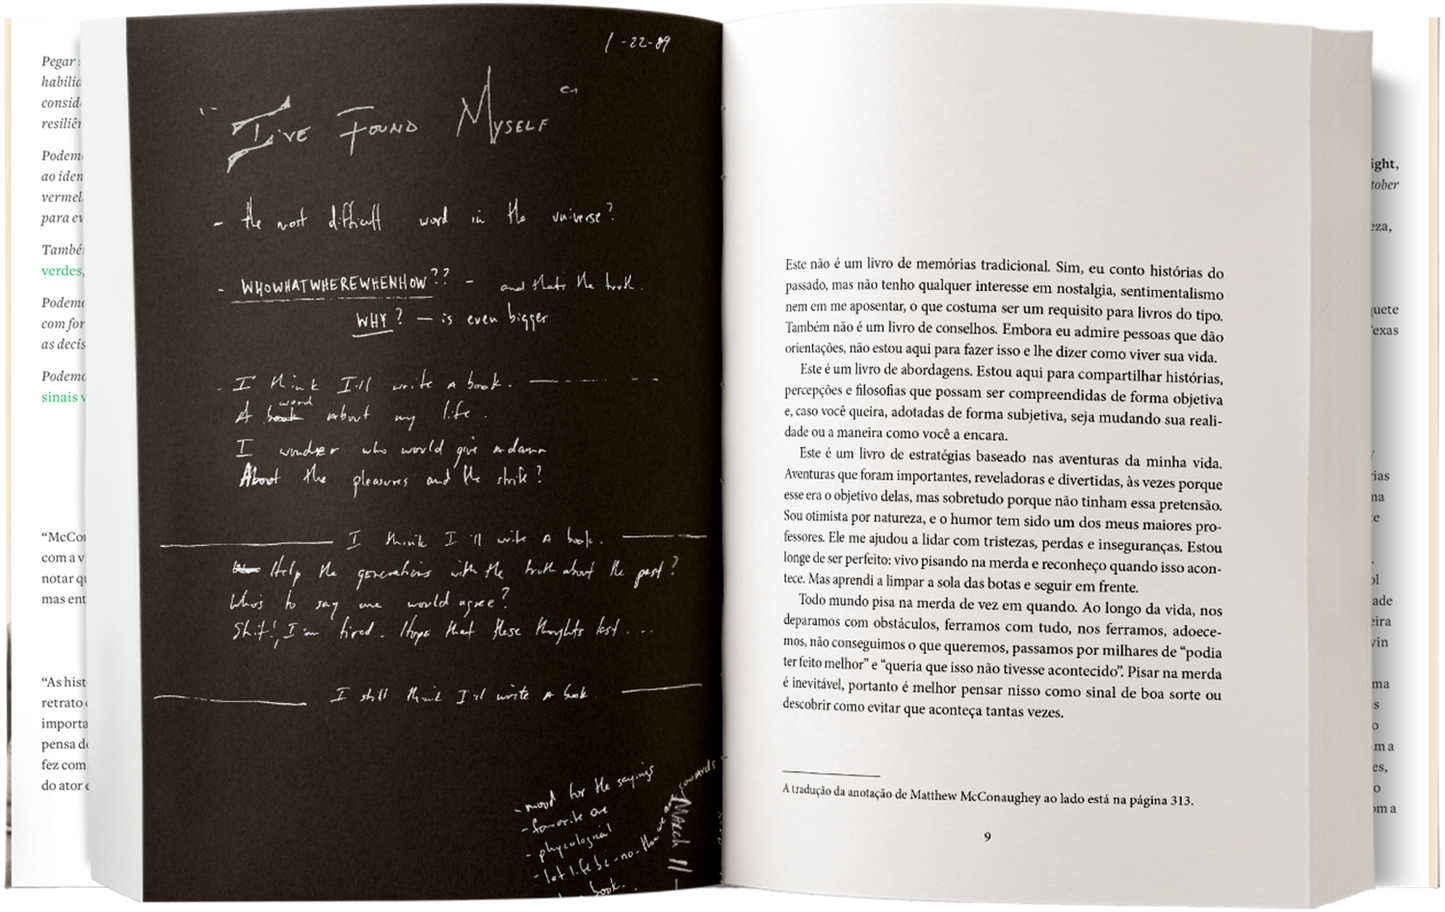 Pegar
habilid
consid
resiliên
Podemo
ao iden
vermel
para ev
També
verdes,
Podemo
com for
as decis
Podemo
sinais v
“McCon
com a v
notar qu
mas ent
“As hist
retrato
importa
pensa de
fez com
do ator e
1-22-89
"I've Found Myself"
- the most difficult word in the universe?
- WHOWHATWHEREWHENHOW?? - and that's the truth.
WHY? - is even bigger
- I think I'll write a book.
word
A book about my life.
I wonder who would give a damn
About the pleasures and the strife?
I think I'll write a book.
Help the generations with the truth about the past?
Who's to say one would agree?
Shit!, I'm tired. Hope that these thoughts last...
I still think I'll write a book.
- mood for the sayings
- favorite are
- phycological
- let life be-no-the
book.
March 11
Este não é um livro de memórias tradicional. Sim, eu conto histórias do
passado, mas não tenho qualquer interesse em nostalgia, sentimentalismo
nem em me aposentar, o que costuma ser um requisito para livros do tipo.
Também não é um livro de conselhos. Embora eu admire pessoas que dão
orientações, não estou aqui para fazer isso e lhe dizer como viver sua vida.
Este é um livro de abordagens. Estou aqui para compartilhar histórias,
percepções e filosofias que possam ser compreendidas de forma objetiva
e, caso você queira, adotadas de forma subjetiva, seja mudando sua reali-
dade ou a maneira como você a encara.
Este é um livro de estratégias baseado nas aventuras da minha vida.
Aventuras que foram importantes, reveladoras e divertidas, às vezes porque
esse era o objetivo delas, mas sobretudo porque não tinham essa pretensão.
Sou otimista por natureza, e o humor tem sido um dos meus maiores pro-
fessores. Ele me ajudou a lidar com tristezas, perdas e inseguranças. Estou
longe de ser perfeito: vivo pisando na merda e reconheço quando isso acon-
tece. Mas aprendi a limpar a sola das botas e seguir em frente.
Todo mundo pisa na merda de vez em quando. Ao longo da vida, nos
deparamos com obstáculos, ferramos com tudo, nos ferramos, adoece-
mos, não conseguimos o que queremos, passamos por milhares de “podia
ter feito melhor” e “queria que isso não tivesse acontecido”. Pisar na merda
é inevitável, portanto é melhor pensar nisso como sinal de boa sorte ou
descobrir como evitar que aconteça tantas vezes.
A tradução da anotação de Matthew McConaughey ao lado está na página 313.
9
ight,
tober
eza,
uete
exas
rias
na
te
ol
ade
eira
vin
ma
s
o
m a
es,
o
om a